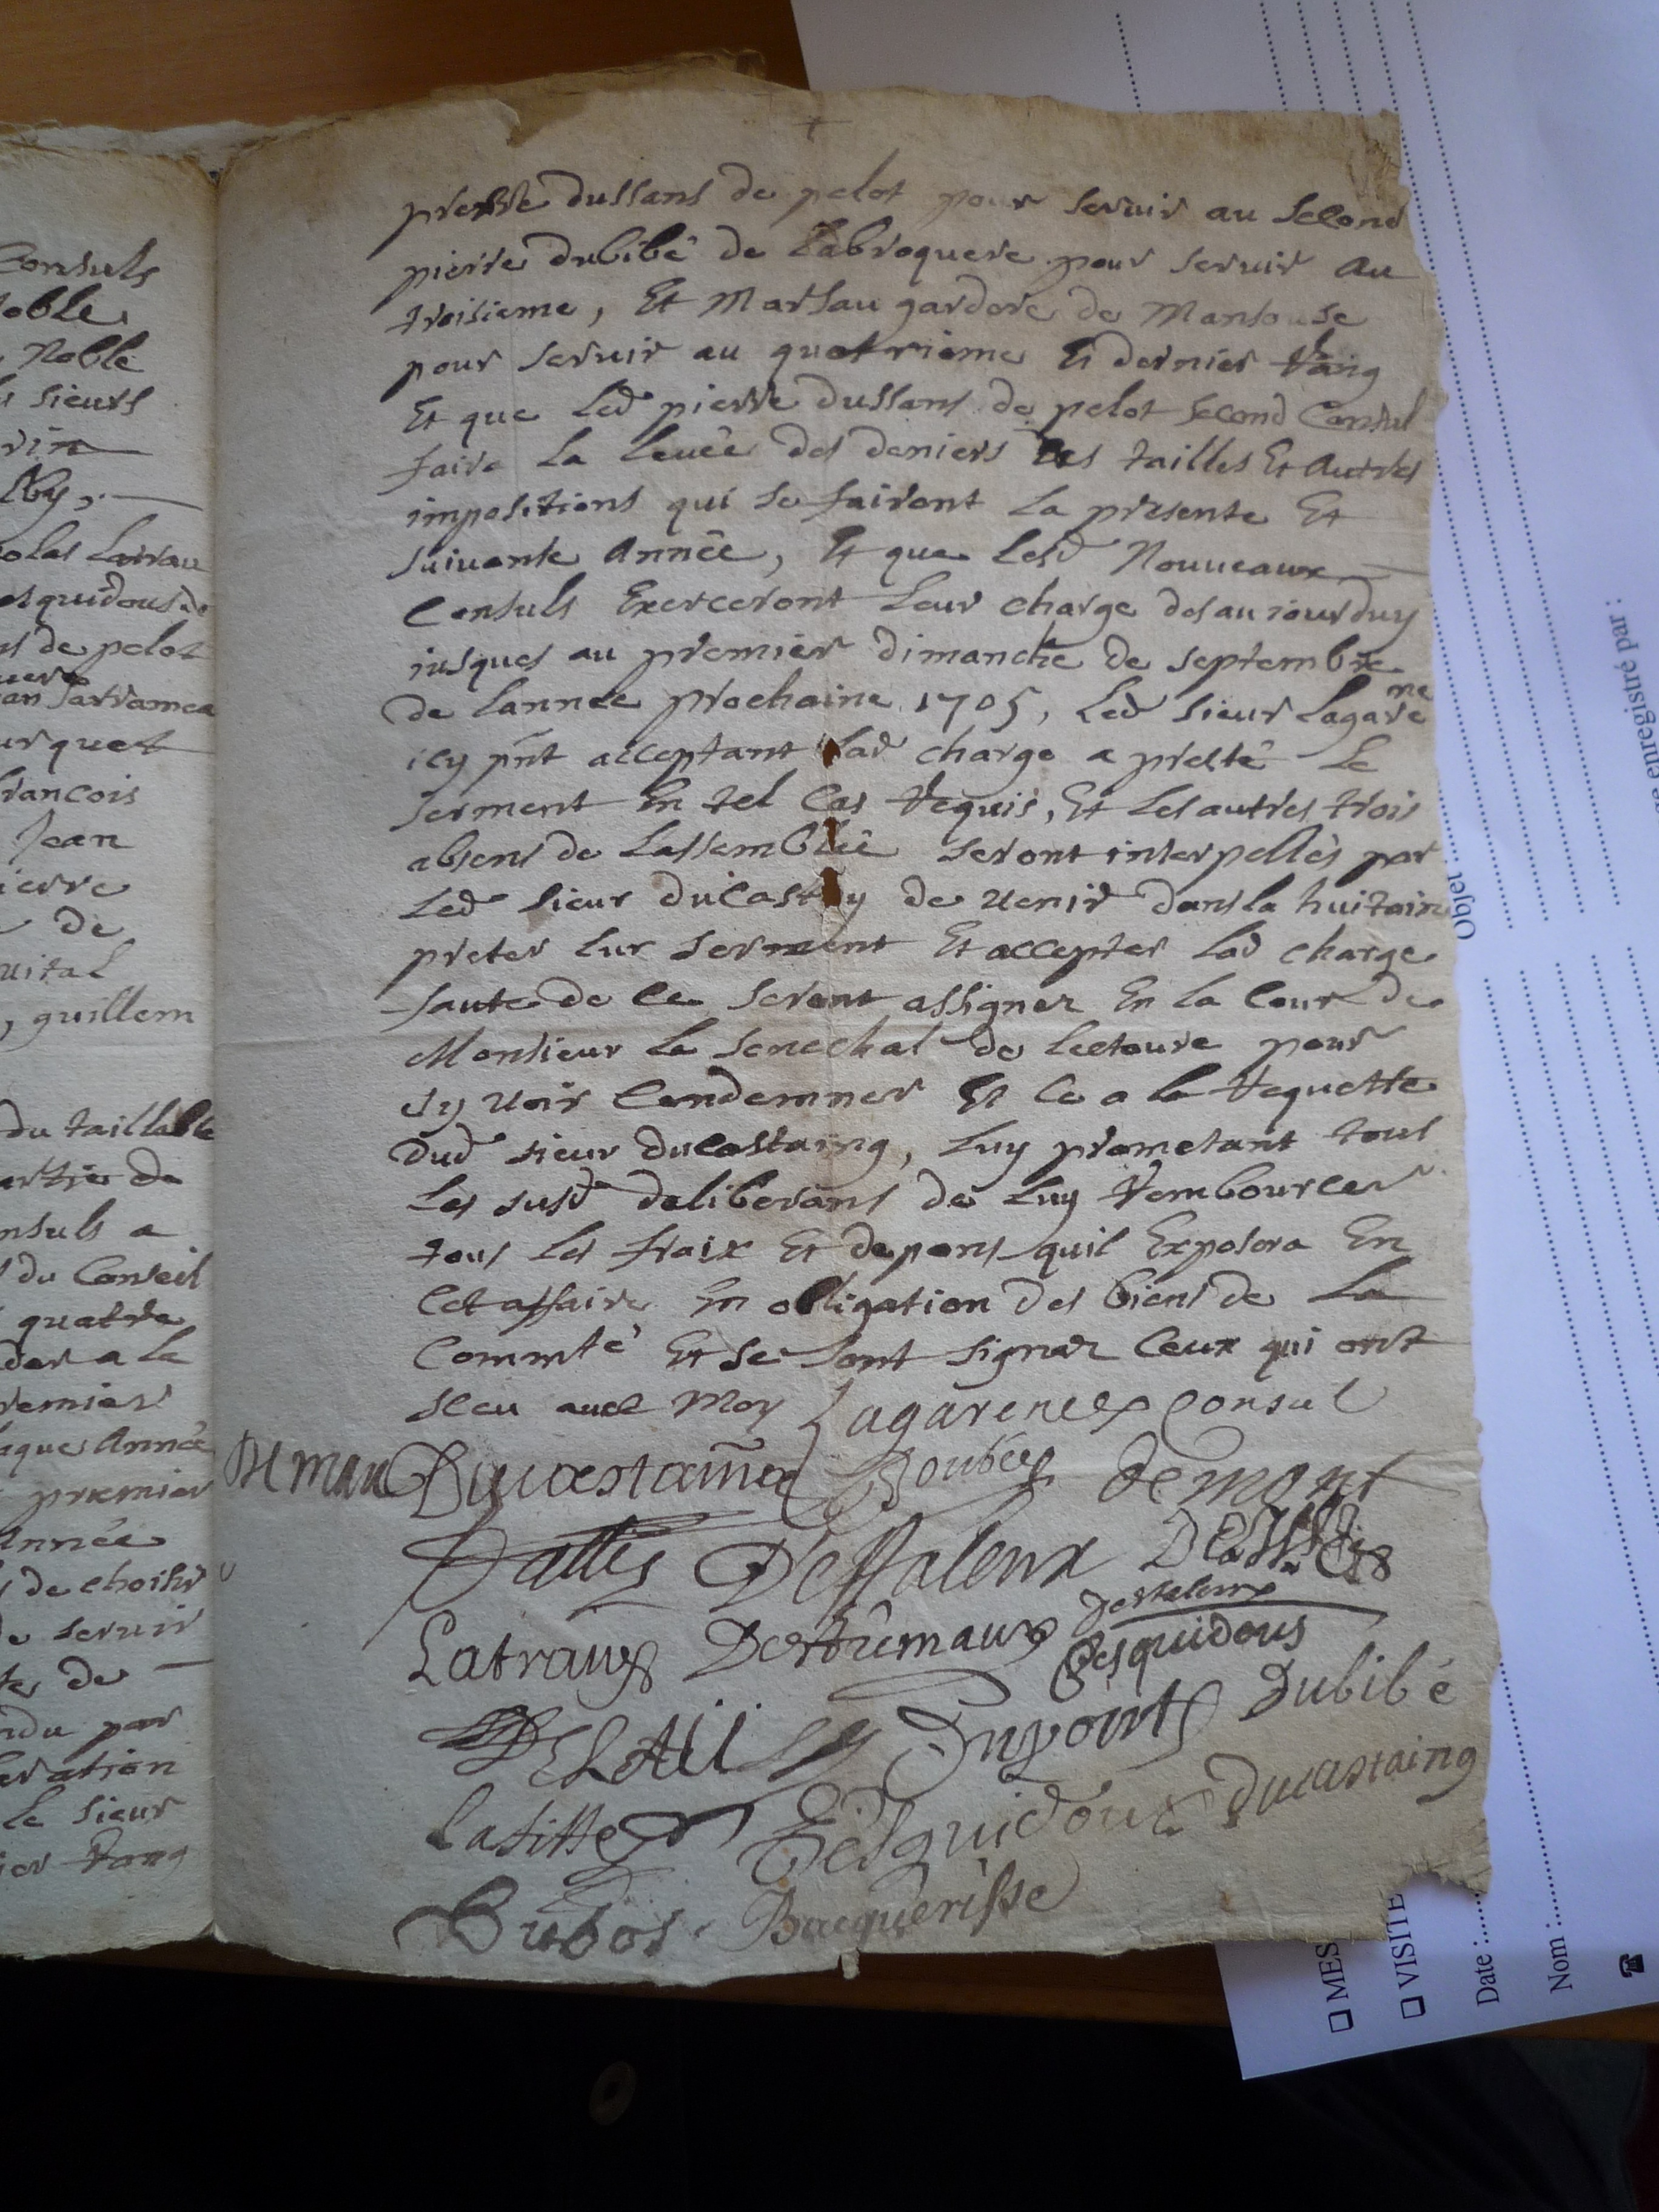 Consuls
noble
Noble
sieurs
Lartau
esquidous de
de pelot
Jan Sarramea
urquet
francois
Jean
ierre
de
vital
, guillem
du taillable
artie de
nsuls a
du Conseil
quatre
der a la
premier
aque Année
premier
Année
de choisir
de servir
tes de
ndu par
eration
le sieur
ier rang
pierre dussans de pelot pour servir au second
pierre dubibé de Labroquere pour servir au
troisieme, Et Marsau gardere de Mansouse
pour servir au quatriome Et dernier rang
Et que Led pierre dussans de pelot second Consul
faire La levée des deniers des tailles Et Autres
impositions qui se fairont La presente Et
suivante Année, Et que Lesd Nouveaux
Consuls Exerceront Leur charge des aujourduy
jusques au premier dimanche de septembre
de Lannee prochaine 1705, Led sieur Lagarene
icy pnt acceptant Lad charge a presté Le
serment En tel Cas requis, Et Les autres trois
absens de Lassemblée seront interpellés par
Led sieur ducastay de venir dans la huitaine
preter Lur serment Et accepter Lad charge
faute de Ce seront assignez En la Cour de
Monsieur Le senechal de Lectoure pour
sy voir Condemner Et Ce a la requette
dud sieur ducastaing, Luy prometant tous
Les susd deliberans de Luy rembourcer
tous Les fraix Et depens quil Exposera En
Cet affaire En obligation des biens de La
Commté Et se sont signez Ceux qui ont
sceu avec Moy Lagarene Consul
Ducastaing Boubée demont
Dallies Destaleux
Latraux Dertremaux Destaleux
Pesquidous
Dupont Dubibé
Lafitte Pesquidoux Ducastaing
Dubos Bacquerisse
Objet :
enregistré par :
☐ MES
☐ VISITE
Date :
Nom :
☎